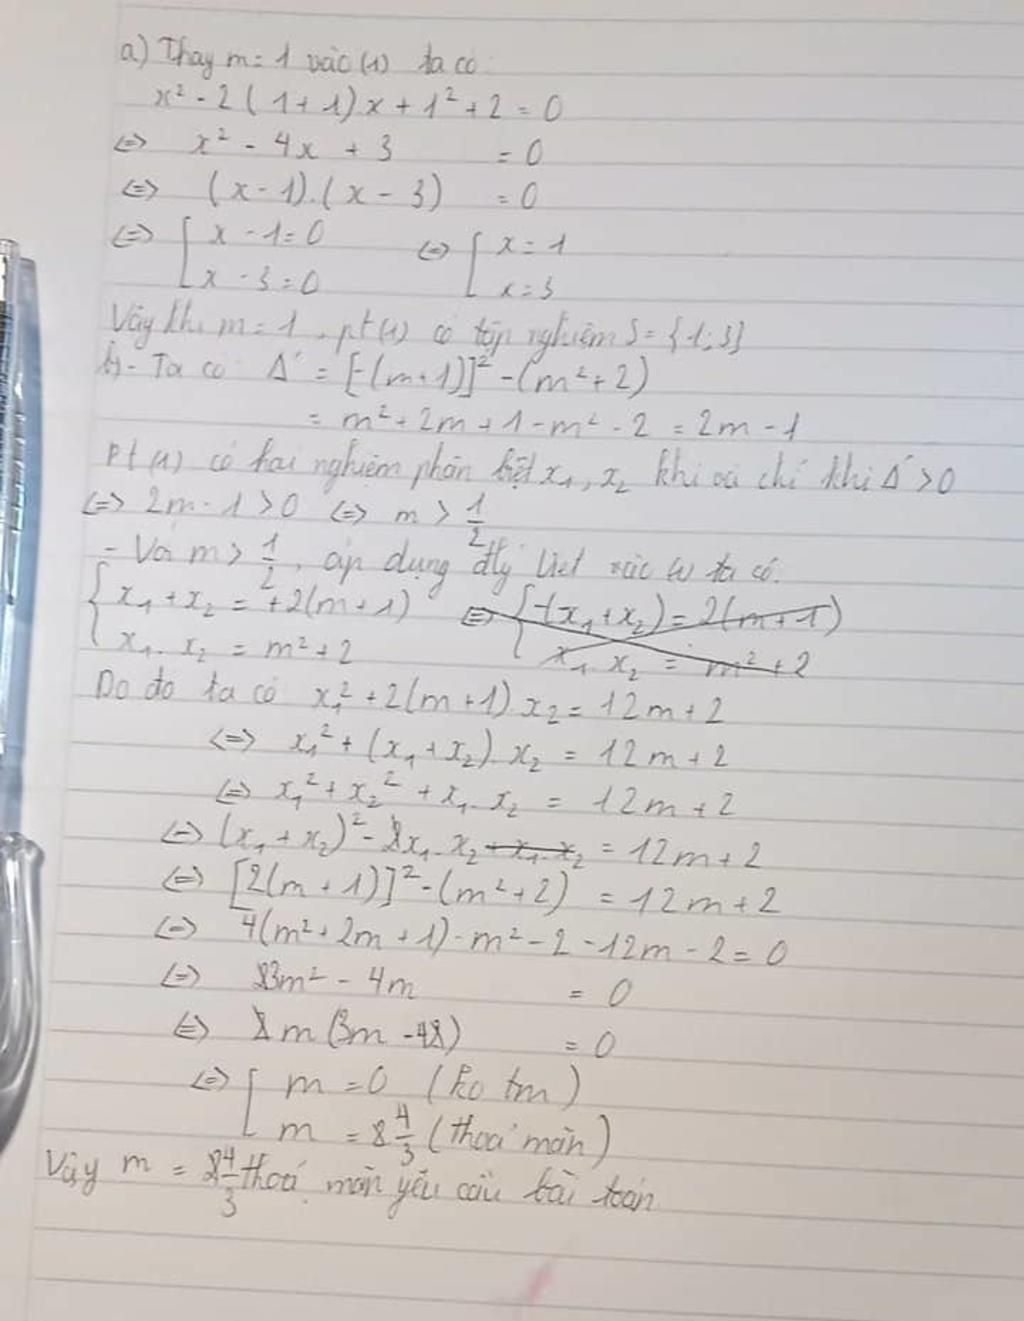 a) Thay m = 1 vào (1) ta có:
x² - 2(1+1)x + 1² + 2 = 0
<=> x² - 4x + 3 = 0
<=> (x-1).(x-3) = 0
<=> [ x - 1 = 0 <=> [ x = 1
x - 3 = 0 x = 3
Vậy khi m = 1, pt (1) có tập nghiệm S = {1;3}
b) - Ta có: Δ' = [-(m+1)]² - (m²+2)
= m² + 2m + 1 - m² - 2 = 2m - 1
Pt (1) có hai nghiệm phân biệt x₁, x₂ khi và chỉ khi Δ' > 0
<=> 2m - 1 > 0 <=> m > 1/2
- Với m > 1/2, áp dụng đlý Viet vào (1) ta có:
{ x₁ + x₂ = +2(m+1) <=> { -(x₁+x₂) = 2(m+1)
x₁. x₂ = m² + 2 x₁. x₂ = m² + 2
Do đó ta có x₁² + 2(m+1).x₂ = 12m + 2
<=> x₁² + (x₁ + x₂).x₂ = 12m + 2
<=> x₁² + x₂² + x₁.x₂ = 12m + 2
<=> (x₁ + x₂)² - x₁.x₂ + x₁.x₂ = 12m + 2
<=> [2(m+1)]² - (m²+2) = 12m + 2
<=> 4(m² + 2m + 1) - m² - 2 - 12m - 2 = 0
<=> 3m² - 4m = 0
<=> m(3m - 4) = 0
<=> [ m = 0 (ko tm)
m = 4/3 (thoả mãn)
Vậy m = 4/3 thoả mãn yêu cầu bài toán.